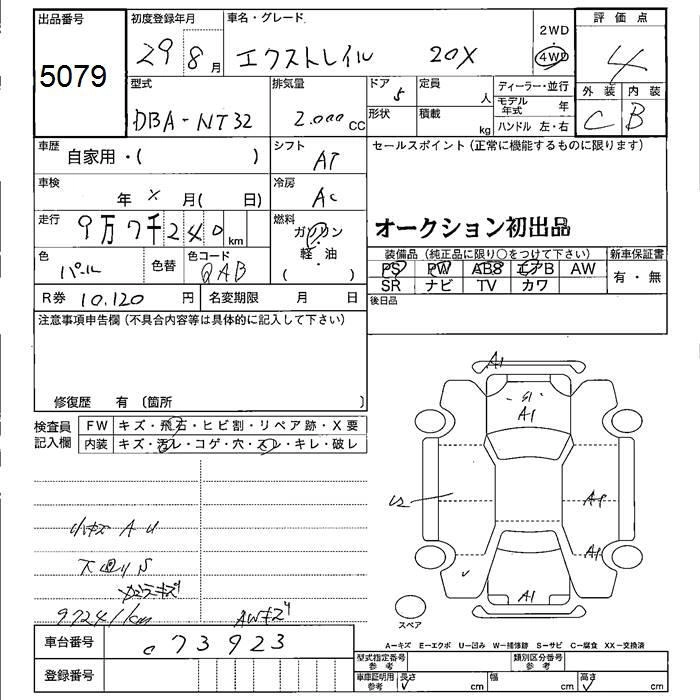 出品番号 初度登録年月 車名・グレード 2WD 評価点
5079 29 8月 エクストレイル 20X 4WD 4
型式 排気量 ドア 5 定員 人 ディーラー・並行 外装 内装
DBA-NT32 2.000 CC 形状 積載 kg モデル年式 年 C B
ハンドル 左・右
車歴 自家用・( ) シフト AT セールスポイント(正常に機能するものに限ります)
車検 年 × 月( 日) 冷房 AC
走行 9万7千240km 燃料 ガソリン・軽油 ( ) オークション初出品
色 パール 色替 色コード QAB
装備品(純正品に限り○をつけて下さい) 新車保証書
PS PW ABS エアB AW 有・無
SR ナビ TV カワ
R券 10.120 円 名変期限 月 日 後日品
注意事項申告欄(不具合内容等は具体的に記入して下さい)
修復歴 有 〔箇所 〕
検査員記入欄 FW キズ・飛石・ヒビ割・リペア跡・X要
内装 キズ・汚レ・コゲ・穴・スレ・キレ・破レ
A1
S1
A1
U2
A1
小キズ A U
下回り S
97241km AWキズ
スペア
A-キズ E-エクボ U-凹み W-補修跡 S-サビ C-腐食 XX-交換済
車台番号 073923
型式指定番号 参考 類別区分番号 参考
登録番号 車庫証明用 参考 長さ cm 幅 cm 高さ cm